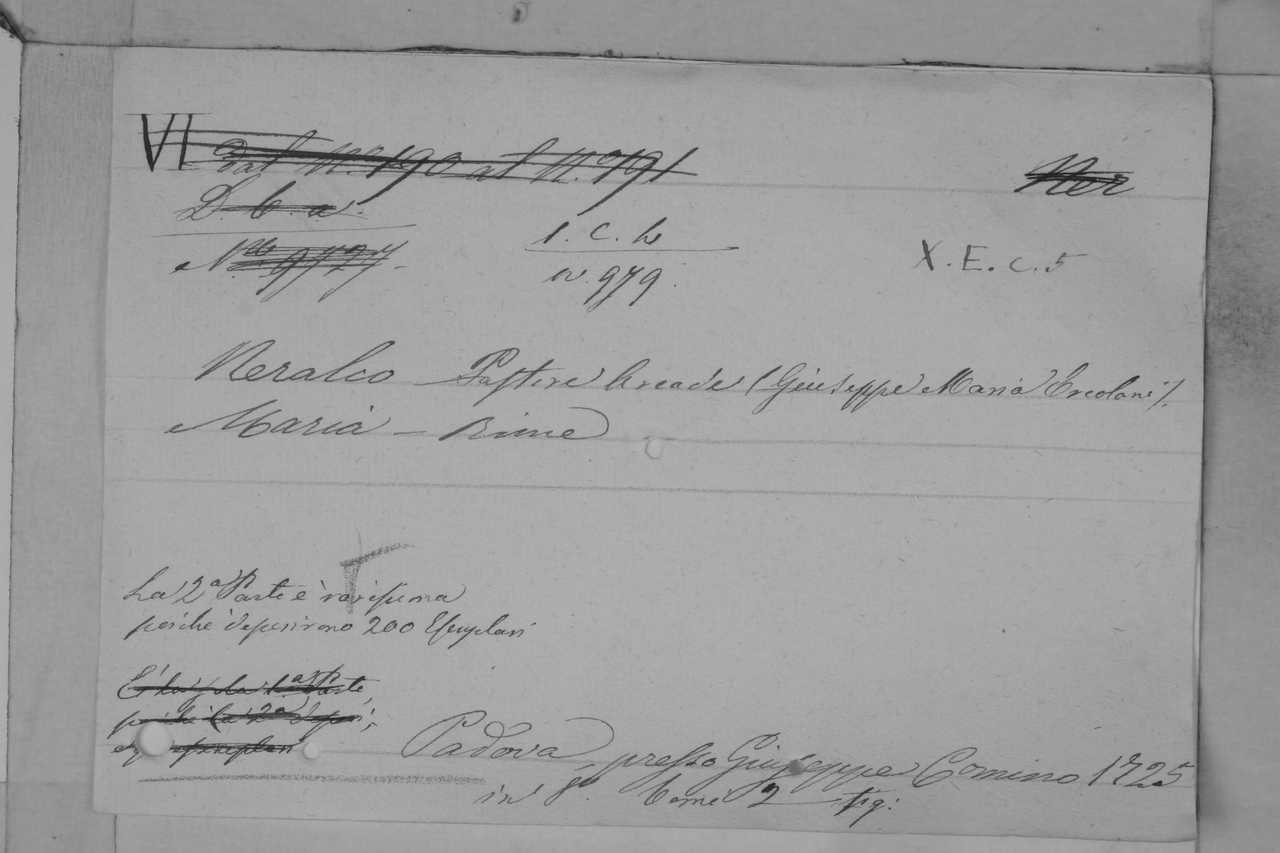 VI Dal N.º 190 al N.º 191
Ner
D. b. a.
N.º
1. C. h
n. 979.
X. E. c. 5
Neralco Pastore Arcade (Giuseppe Maria Ercolani).
Maria – Rime
La 2ª Parte è rarissima
poichè perirono 200 Esemplari
la 1ª Parte,
poichè la 2ª
esemplari
Padova, presso Giuseppe Comino 1725
in 8º. Tome 2 fig: